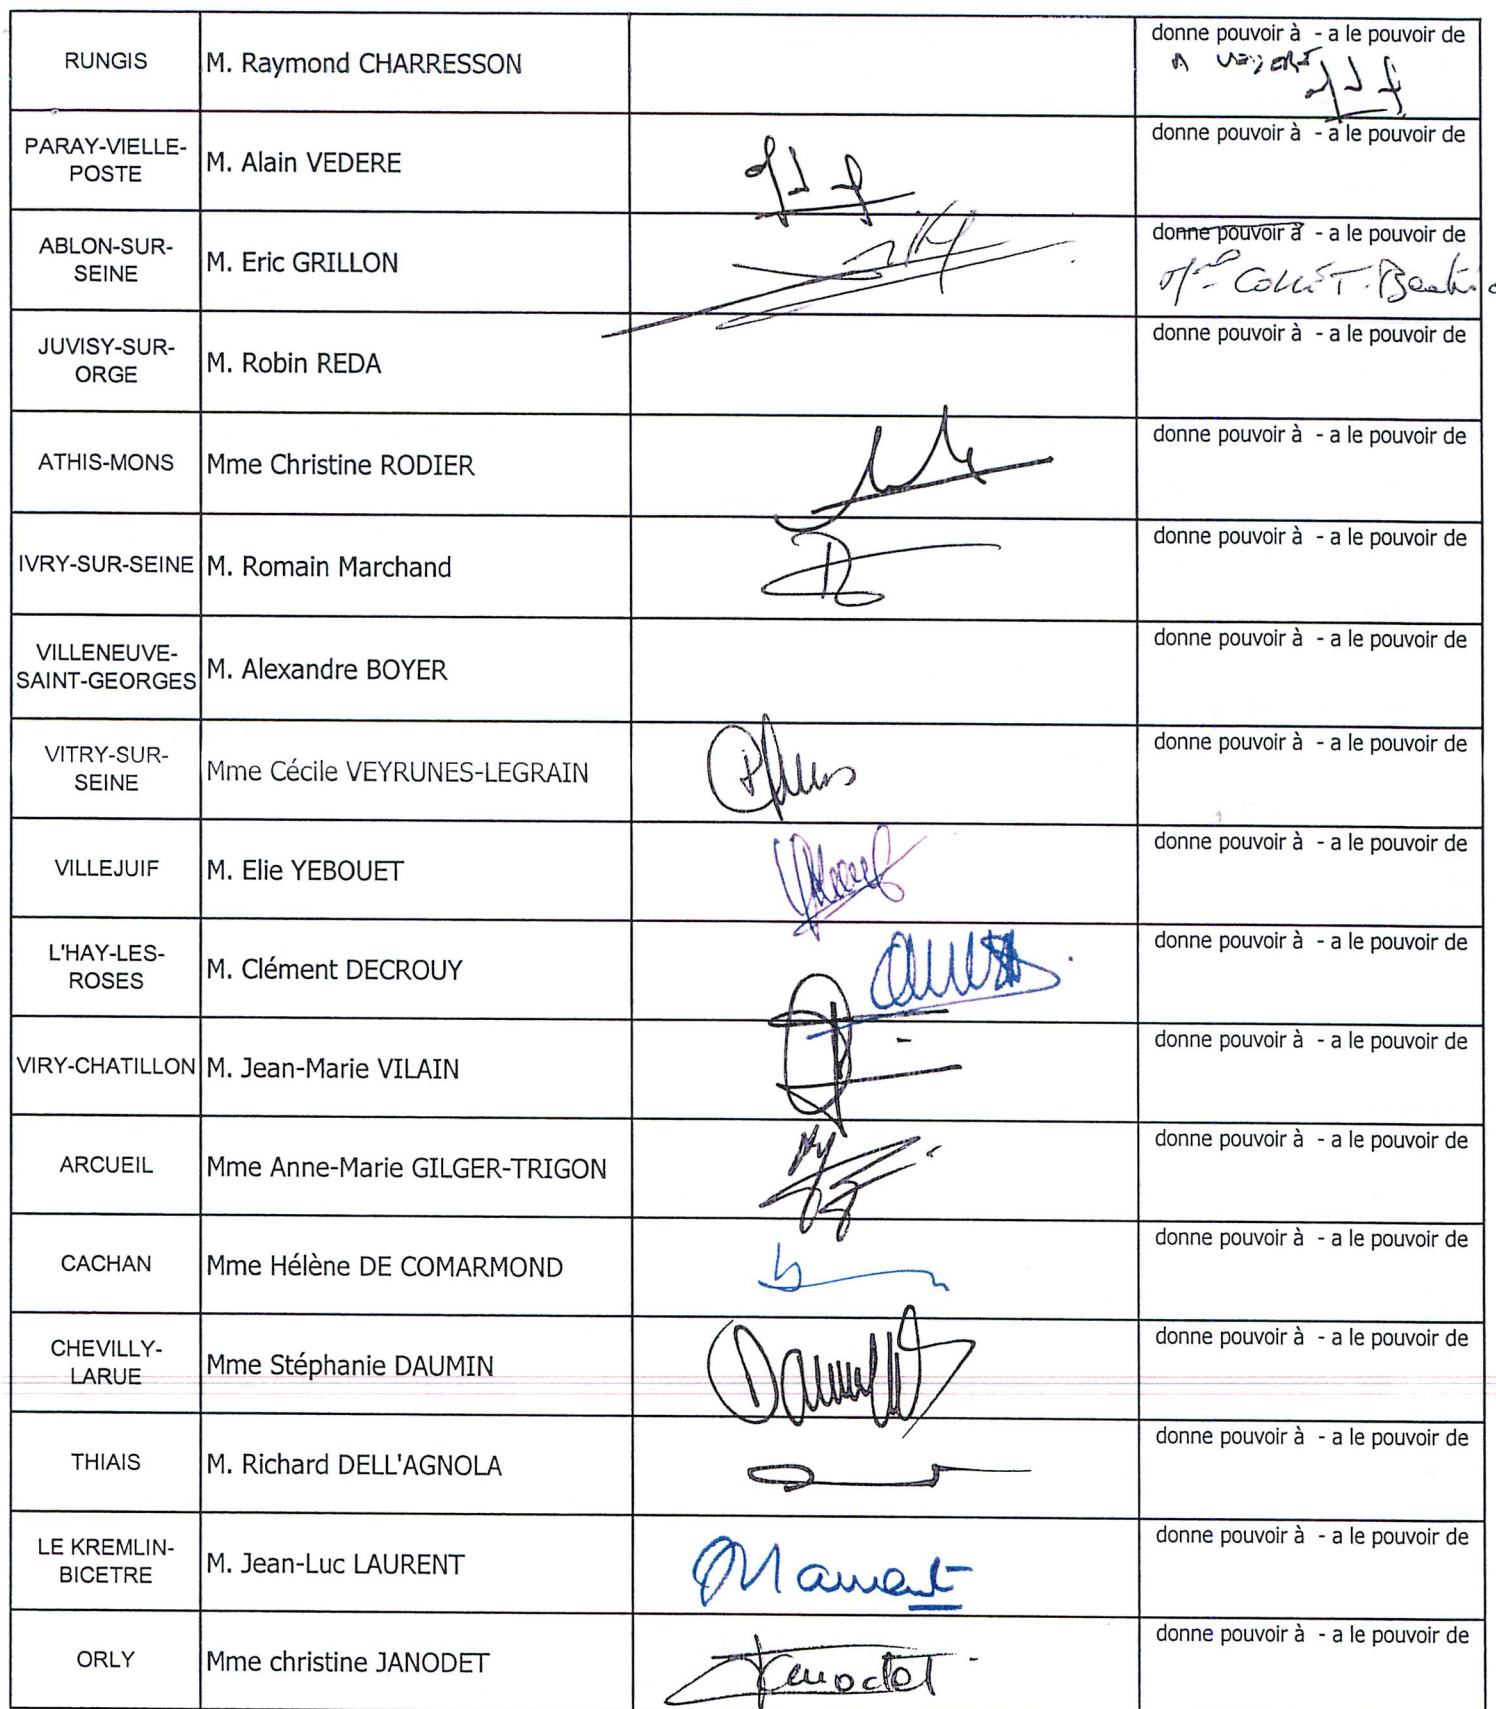 RUNGIS
M. Raymond CHARRESSON
donne pouvoir à - a le pouvoir de
PARAY-VIELLE-
POSTE
M. Alain VEDERE
donne pouvoir à - a le pouvoir de
ABLON-SUR-
SEINE
M. Eric GRILLON
donne pouvoir à - a le pouvoir de
JUVISY-SUR-
ORGE
M. Robin REDA
donne pouvoir à - a le pouvoir de
ATHIS-MONS
Mme Christine RODIER
donne pouvoir à - a le pouvoir de
IVRY-SUR-SEINE
M. Romain Marchand
donne pouvoir à - a le pouvoir de
VILLENEUVE-
SAINT-GEORGES
M. Alexandre BOYER
donne pouvoir à - a le pouvoir de
VITRY-SUR-
SEINE
Mme Cécile VEYRUNES-LEGRAIN
donne pouvoir à - a le pouvoir de
VILLEJUIF
M. Elie YEBOUET
donne pouvoir à - a le pouvoir de
L'HAY-LES-
ROSES
M. Clément DECROUY
donne pouvoir à - a le pouvoir de
VIRY-CHATILLON
M. Jean-Marie VILAIN
donne pouvoir à - a le pouvoir de
ARCUEIL
Mme Anne-Marie GILGER-TRIGON
donne pouvoir à - a le pouvoir de
CACHAN
Mme Hélène DE COMARMOND
donne pouvoir à - a le pouvoir de
CHEVILLY-
LARUE
Mme Stéphanie DAUMIN
donne pouvoir à - a le pouvoir de
THIAIS
M. Richard DELL'AGNOLA
donne pouvoir à - a le pouvoir de
LE KREMLIN-
BICETRE
M. Jean-Luc LAURENT
donne pouvoir à - a le pouvoir de
ORLY
Mme christine JANODET
donne pouvoir à - a le pouvoir de